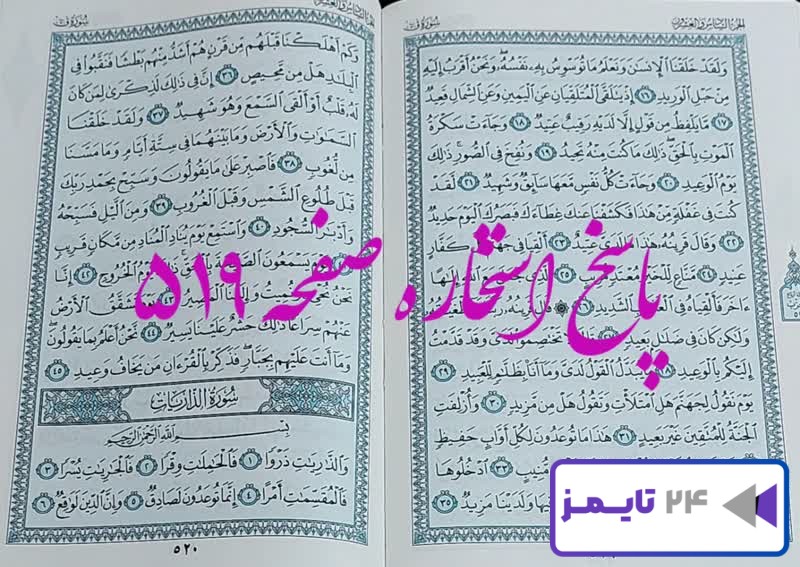 الجزء السادس والعشرون
سورة ق
وَلَقَدْ خَلَقْنَا ٱلْإِنسَٰنَ وَنَعْلَمُ مَا تُوَسْوِسُ بِهِۦ نَفْسُهُۥ وَنَحْنُ أَقْرَبُ إِلَيْهِ
مِنْ حَبْلِ ٱلْوَرِيدِ ١٦ إِذْ يَتَلَقَّى ٱلْمُتَلَقِّيَانِ عَنِ ٱلْيَمِينِ وَعَنِ ٱلشِّمَالِ قَعِيدٌ
١٧ مَّا يَلْفِظُ مِن قَوْلٍ إِلَّا لَدَيْهِ رَقِيبٌ عَتِيدٌ ١٨ وَجَآءَتْ سَكْرَةُ
ٱلْمَوْتِ بِٱلْحَقِّ ذَٰلِكَ مَا كُنتَ مِنْهُ تَحِيدُ ١٩ وَنُفِخَ فِى ٱلصُّورِ ذَٰلِكَ
يَوْمُ ٱلْوَعِيدِ ٢٠ وَجَآءَتْ كُلُّ نَفْسٍ مَّعَهَا سَآئِقٌ وَشَهِيدٌ ٢١ لَّقَدْ
كُنتَ فِى غَفْلَةٍ مِّنْ هَٰذَا فَكَشَفْنَا عَنكَ غِطَآءَكَ فَبَصَرُكَ ٱلْيَوْمَ حَدِيدٌ
٢٢ وَقَالَ قَرِينُهُۥ هَٰذَا مَا لَدَىَّ عَتِيدٌ ٢٣ أَلْقِيَا فِى جَهَنَّمَ كُلَّ كَفَّارٍ
عَنِيدٍ ٢٤ مَّنَّاعٍ لِّلْخَيْرِ مُعْتَدٍ مُّرِيبٍ ٢٥ ٱلَّذِى جَعَلَ مَعَ ٱللَّهِ إِلَٰهًا
ءَاخَرَ فَأَلْقِيَاهُ فِى ٱلْعَذَابِ ٱلشَّدِيدِ ٢٦ قَالَ قَرِينُهُۥ رَبَّنَا مَآ أَطْغَيْتُهُۥ
وَلَٰكِن كَانَ فِى ضَلَٰلٍۭ بَعِيدٍ ٢٧ قَالَ لَا تَخْتَصِمُوا۟ لَدَىَّ وَقَدْ قَدَّمْتُ
إِلَيْكُم بِٱلْوَعِيدِ ٢٨ مَا يُبَدَّلُ ٱلْقَوْلُ لَدَىَّ وَمَآ أَنَا۠ بِظَلَّٰمٍ لِّلْعَبِيدِ ٢٩
يَوْمَ نَقُولُ لِجَهَنَّمَ هَلِ ٱمْتَلَأْتِ وَتَقُولُ هَلْ مِن مَّزِيدٍ ٣٠ وَأُزْلِفَتِ
ٱلْجَنَّةُ لِلْمُتَّقِينَ غَيْرَ بَعِيدٍ ٣١ هَٰذَا مَا تُوعَدُونَ لِكُلِّ أَوَّابٍ حَفِيظٍ
مُّنِيبٍ ٣٣ ٱدْخُلُوهَا
فِيهَا وَلَدَيْنَا مَزِيدٌ ٣٥
الجزء السادس والعشرون
سورة ق
وَكَمْ أَهْلَكْنَا قَبْلَهُم مِّن قَرْنٍ هُمْ أَشَدُّ مِنْهُم بَطْشًا فَنَقَّبُوا۟ فِى
ٱلْبِلَٰدِ هَلْ مِن مَّحِيصٍ ٣٦ إِنَّ فِى ذَٰلِكَ لَذِكْرَىٰ لِمَن كَانَ
لَهُۥ قَلْبٌ أَوْ أَلْقَى ٱلسَّمْعَ وَهُوَ شَهِيدٌ ٣٧ وَلَقَدْ خَلَقْنَا
ٱلسَّمَٰوَٰتِ وَٱلْأَرْضَ وَمَا بَيْنَهُمَا فِى سِتَّةِ أَيَّامٍ وَمَا مَسَّنَا
مِن لُّغُوبٍ ٣٨ فَٱصْبِرْ عَلَىٰ مَا يَقُولُونَ وَسَبِّحْ بِحَمْدِ رَبِّكَ
قَبْلَ طُلُوعِ ٱلشَّمْسِ وَقَبْلَ ٱلْغُرُوبِ ٣٩ وَمِنَ ٱلَّيْلِ فَسَبِّحْهُ
وَأَدْبَٰرَ ٱلسُّجُودِ ٤٠ وَٱسْتَمِعْ يَوْمَ يُنَادِ ٱلْمُنَادِ مِن مَّكَانٍ قَرِيبٍ
٤١ يَوْمَ يَسْمَعُونَ ٱلصَّيْحَةَ بِٱلْحَقِّ ذَٰلِكَ يَوْمُ ٱلْخُرُوجِ ٤٢ إِنَّا
نَحْنُ نُحْىِۦ وَنُمِيتُ وَإِلَيْنَا ٱلْمَصِيرُ ٤٣ يَوْمَ تَشَقَّقُ ٱلْأَرْضُ
عَنْهُمْ سِرَاعًا ذَٰلِكَ حَشْرٌ عَلَيْنَا يَسِيرٌ ٤٤ نَّحْنُ أَعْلَمُ بِمَا يَقُولُونَ
وَمَآ أَنتَ عَلَيْهِم بِجَبَّارٍ فَذَكِّرْ بِٱلْقُرْءَانِ مَن يَخَافُ وَعِيدِ ٤٥
سُورَةُ الذَّارِيَاتِ
بِسْمِ ٱللَّهِ ٱلرَّحْمَٰنِ ٱلرَّحِيمِ
وَٱلذَّٰرِيَٰتِ ذَرْوًا ١ فَٱلْحَٰمِلَٰتِ وِقْرًا ٢ فَٱلْجَٰرِيَٰتِ يُسْرًا ٣
فَٱلْمُقَسِّمَٰتِ أَمْرًا ٤ إِنَّمَا تُوعَدُونَ لَصَادِقٌ ٥ وَإِنَّ ٱلدِّينَ لَوَٰقِعٌ ٦
٥٢٠
پاسخ استخاره صفحه ۵۱۹
۲۴ تایمز